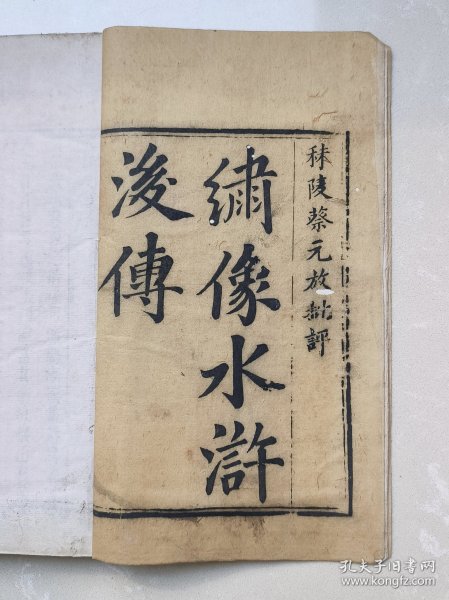 秣陵蔡元放批評
繡像水滸
後傳
孔夫子旧书网
www.kongfz.com